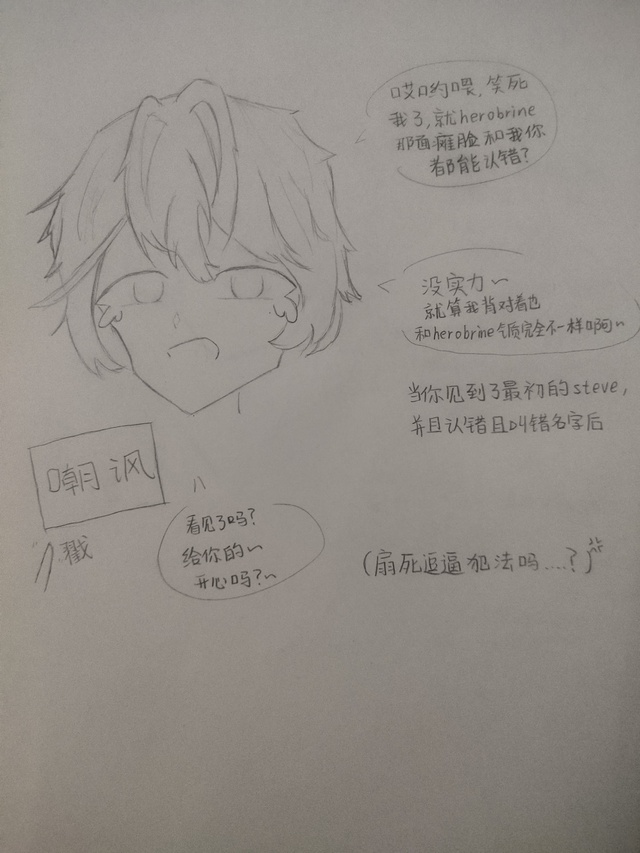 哎哟喂，笑死
我了，就herobrine
那面瘫脸和我你
都能认错？
没实力～
就算我背对着也
和herobrine气质完全不一样啊～
当你见到了最初的steve，
并且认错且叫错名字后
嘲讽
戳
看见了吗？
给你的～
开心吗？～
（扇死逗逼犯法吗....？）